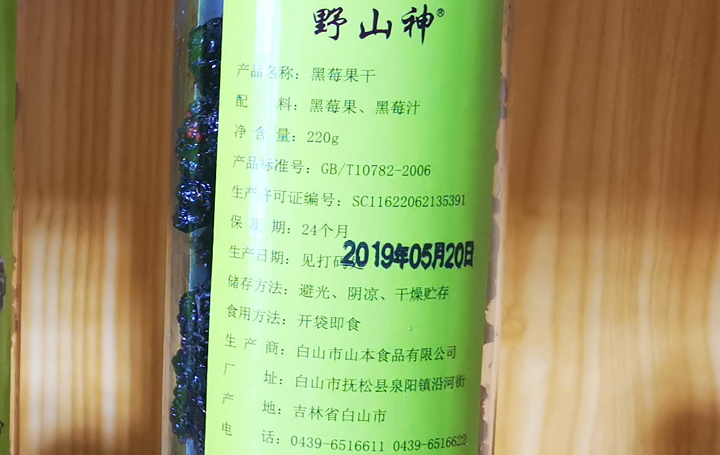 野山神®
产品名称：黑莓果干
配 料：黑莓果、黑莓汁
净 含 量：220g
产品标准号：GB/T10782-2006
生产许可证编号：SC11622062135391
保 质 期：24个月
生产日期：见打码处 2019年05月20日
储存方法：避光、阴凉、干燥贮存
食用方法：开袋即食
生 产 商：白山市山本食品有限公司
厂 址：白山市抚松县泉阳镇沿河街
产 地：吉林省白山市
电 话：0439-6516611 0439-6516622